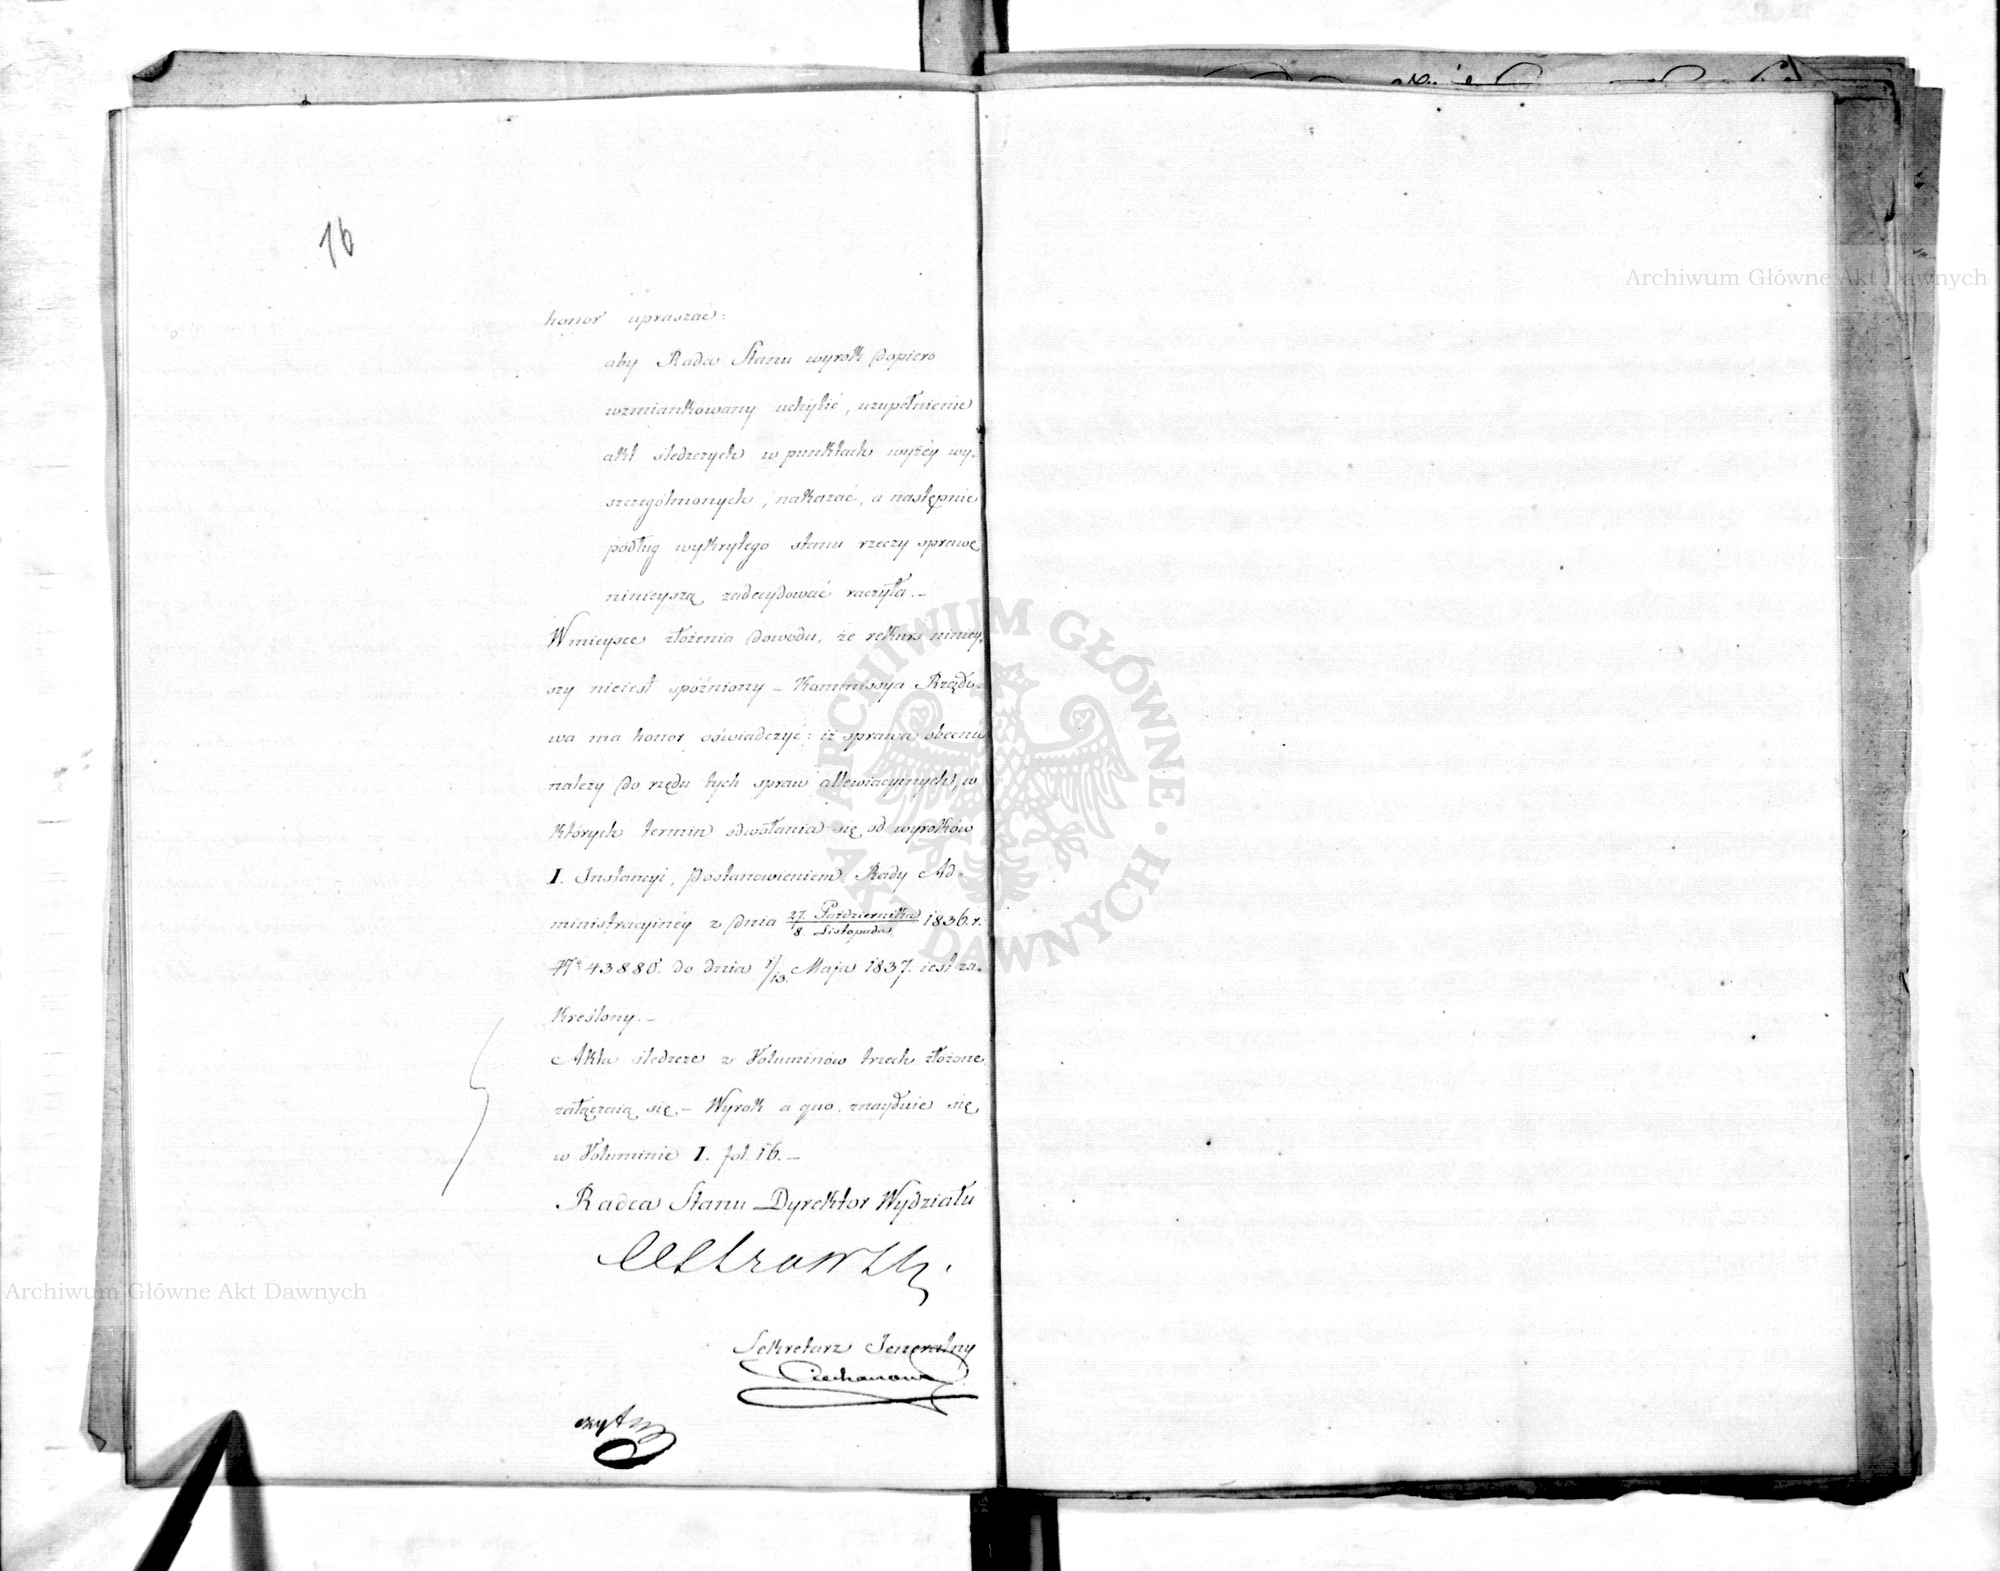 16
honor upraszać:
aby Rada Stanu wyrok dopiero
wzmiankowany uchylić, uzupełnienie
akt śledczych w punktach wyżey wy-
szczególnionych, nakazać, a następnie
podług wykrytego stanu rzeczy sprawę
ninieyszą zadecydować raczyła.-
W mieysce złożenia dowodu, że rekurs niniey-
szy nieiest spóźniony - Kommissya Rządo-
wa ma honor oświadczyć: iż sprawa obecna
należy do rzędu tych spraw allewiacyinych, w
których termin odwołania się od wyroków
I. Instancyi, Postanowieniem Rady Ad-
ministracyinéy z dnia 27. Października/8. Listopada 1836. r.
Nº 43880. do dnia 1/13. Maja 1837. iest za-
kreślony.-
Akta śledcze z Voluminów trzech złożone
załączaią się - Wyrok a quo znayduie się
w Voluminie I. fol. 16.-
Radca Stanu Dyrektor Wydziału
Sekretarz Jeneralny
ARCHIWUM GŁÓWNE
AKT DAWNYCH
Archiwum Główne Akt Dawnych
Archiwum Główne Akt Dawnych